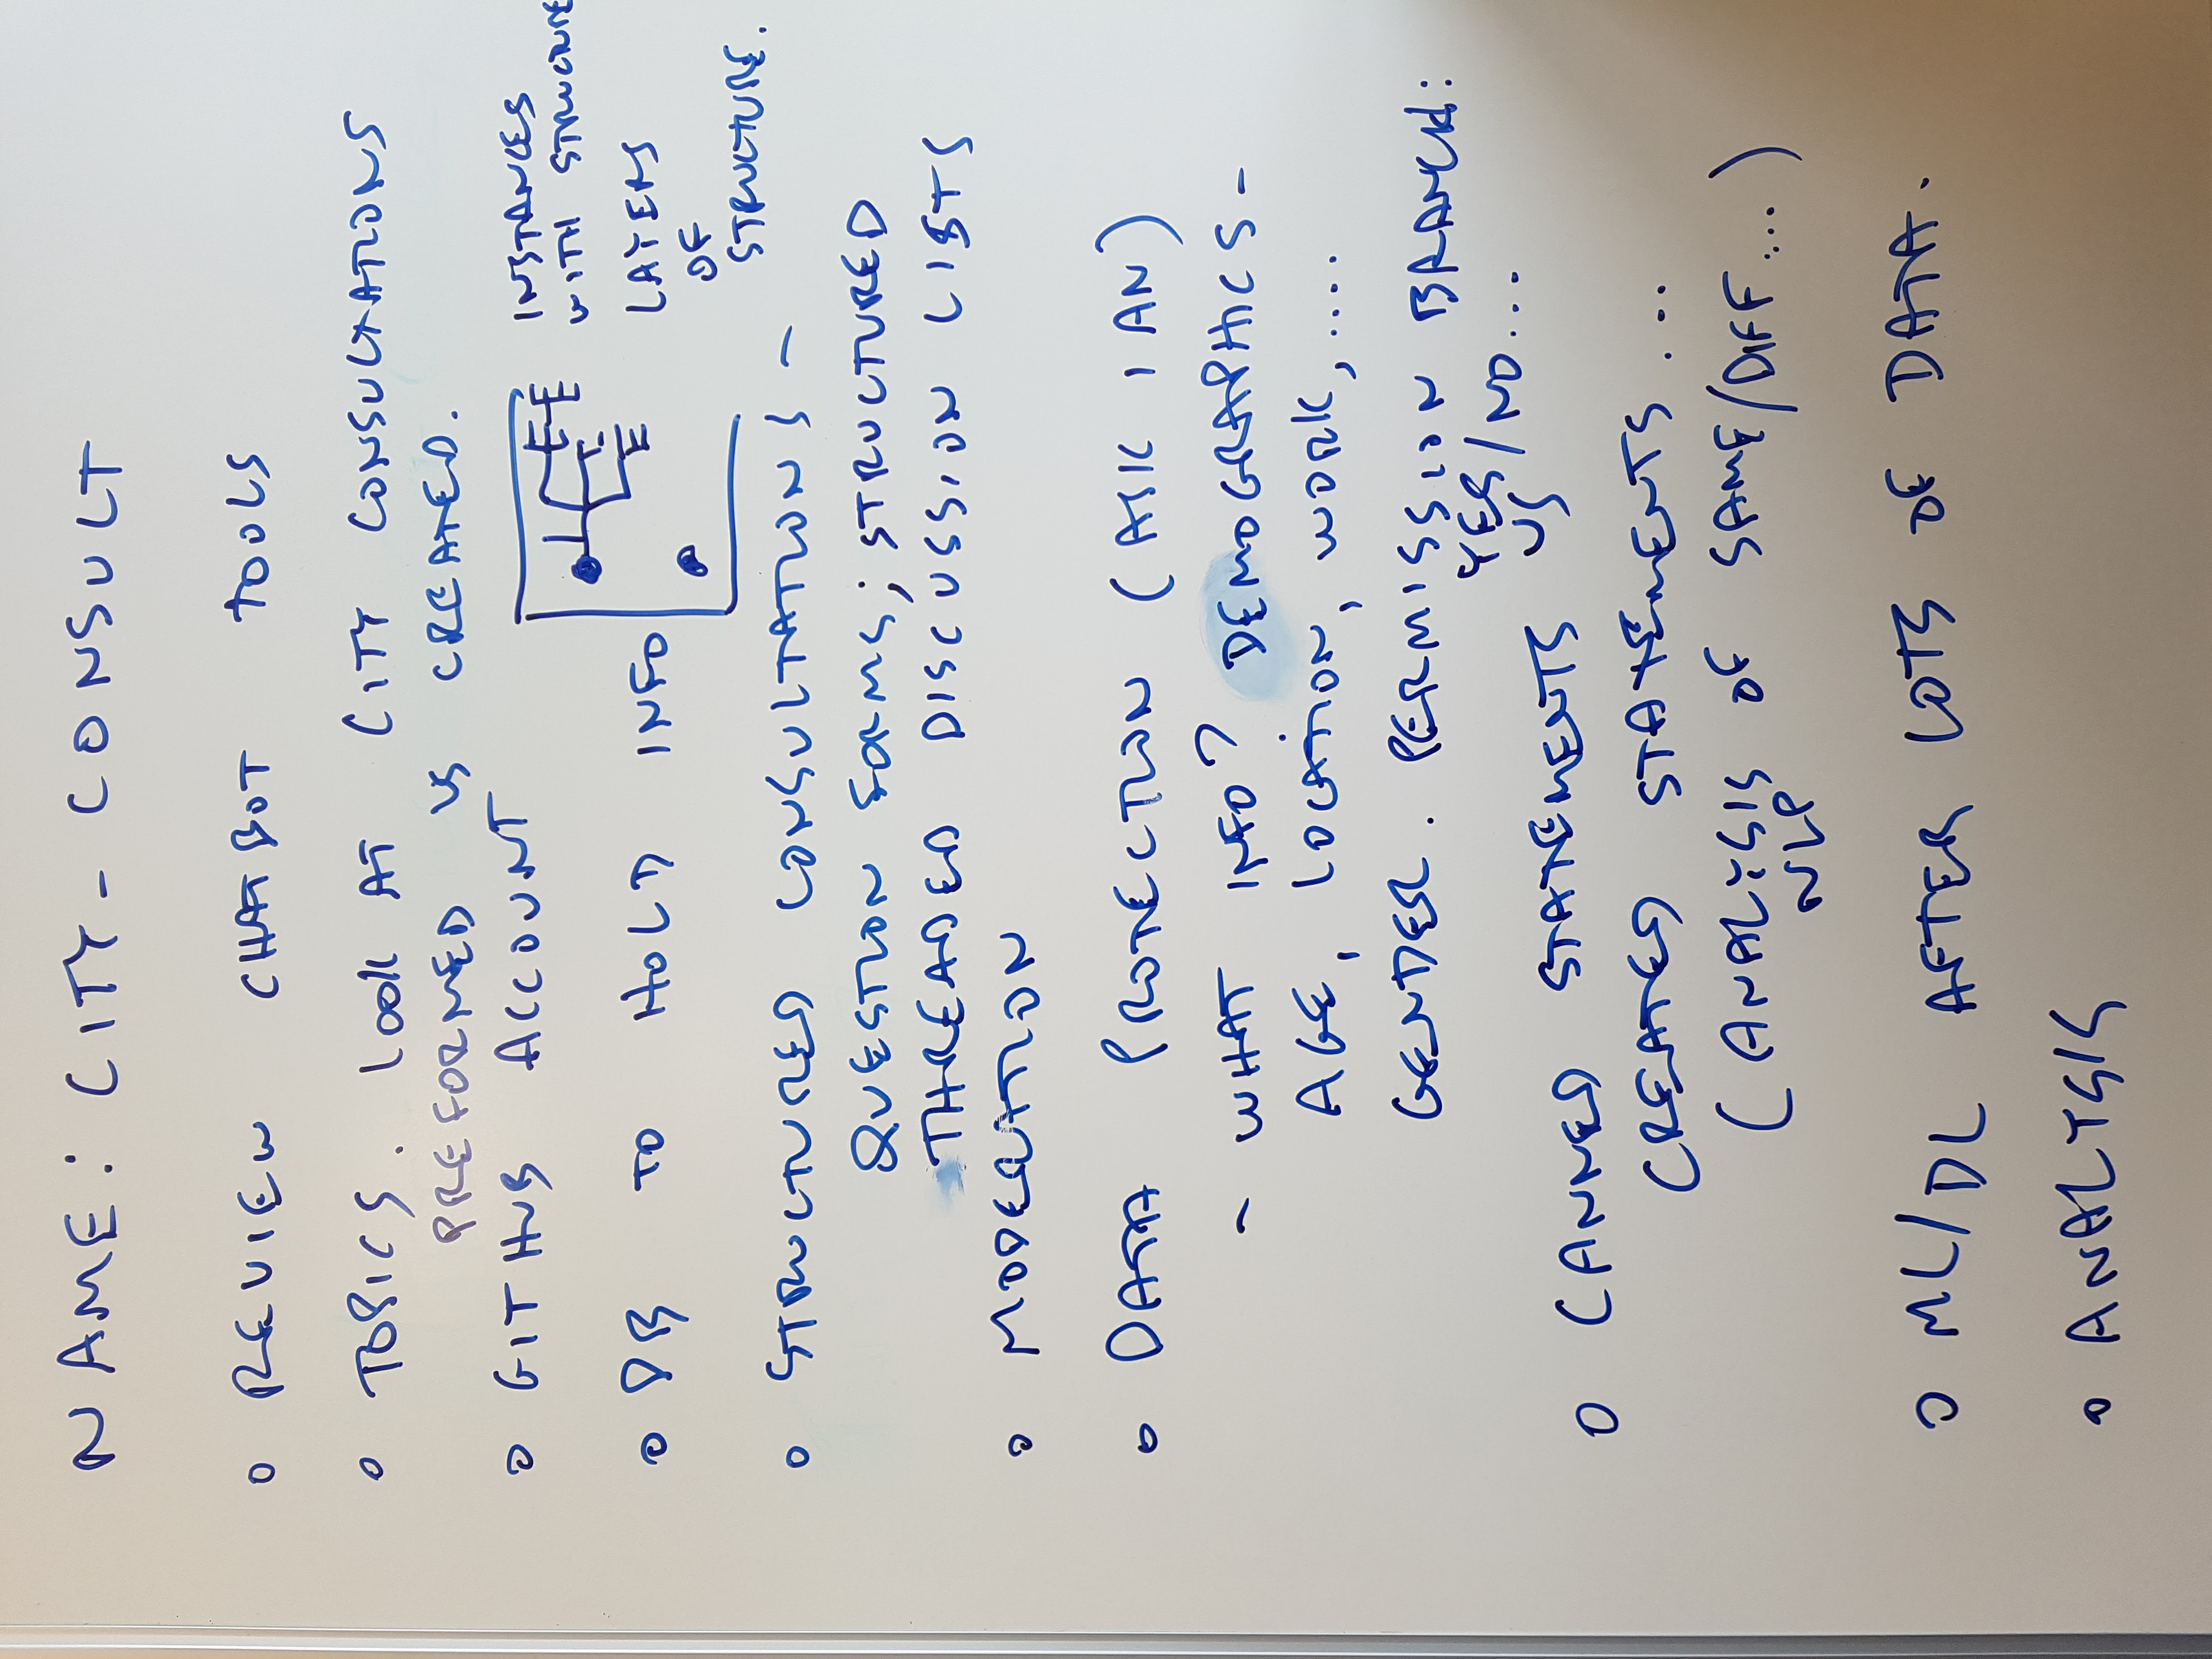 NAME: CITY - CONSULT
o REVIEW CHATBOT TOOLS
o TOPICS. LOOK AT CITY CONSULTATIONS
PREFORMED VS CREATED.
o GITHUB ACCOUNT
INSTANCES
WITH STRUCTURE
o DB TO HOLD INFO
LAYERS
OF
STRUCTURE.
o STRUCTURED CONSULTATIONS -
QUESTION FORMS; STRUCTURED
THREADED DISCUSSION LISTS
o MODERATION
o DATA PROTECTION (ASK IAN)
- WHAT INFO? DEMOGRAPHICS -
AGE, LOCATION, WORK, ....
GENDER. PERMISSION BRANCH:
YES/NO...
o CANNED STATEMENTS VS
CREATED STATEMENTS ...
(ANALYSIS OF SAME/DIFF....)
NLP
o ML/DL AFTER LOTS OF DATA.
o ANALYSIS